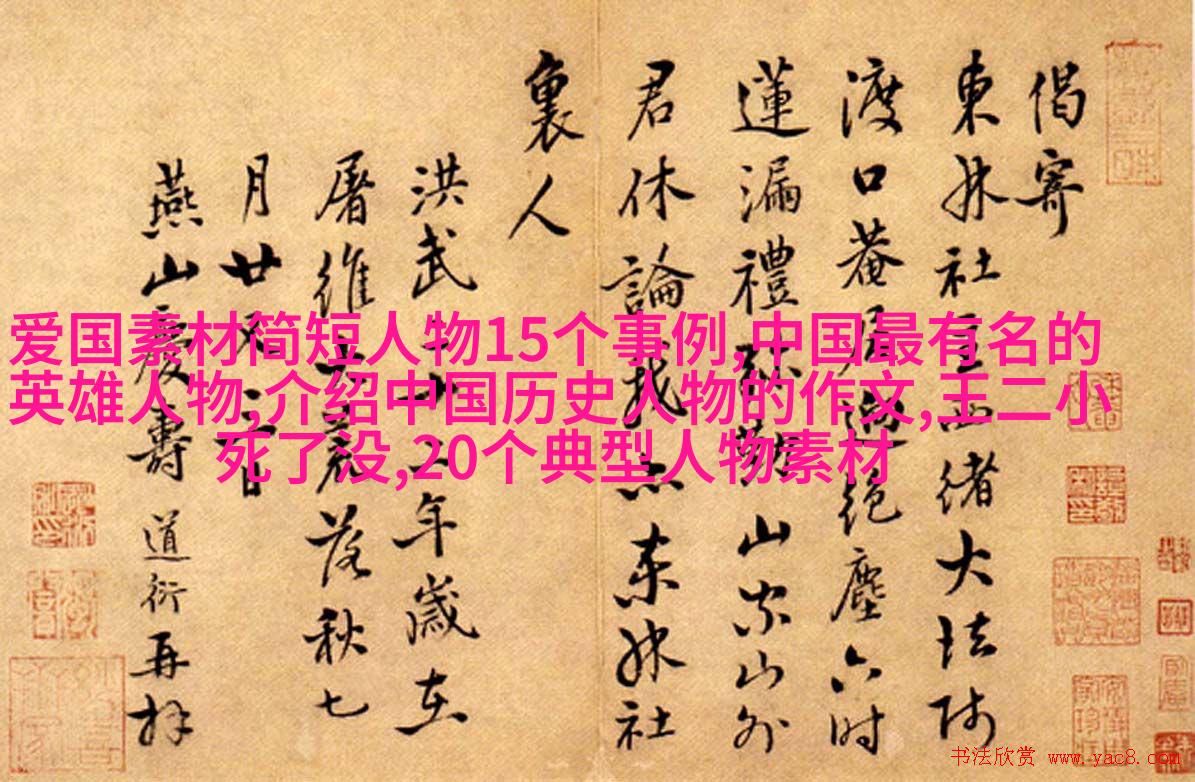 偈寄
東林社緒大法師
渡口菴居絕塵六時
蓮漏禮山家山外
君休論我亦東林社
裏人
洪武二年歲在
屠維大荒落秋七
月廿日
燕山慶壽道衍再拜
爱国素材简短人物15个事例,中国最有名的
英雄人物,介绍中国历史人物的作文,王二小
死了没,20个典型人物素材
书法欣赏 www.yac8.com